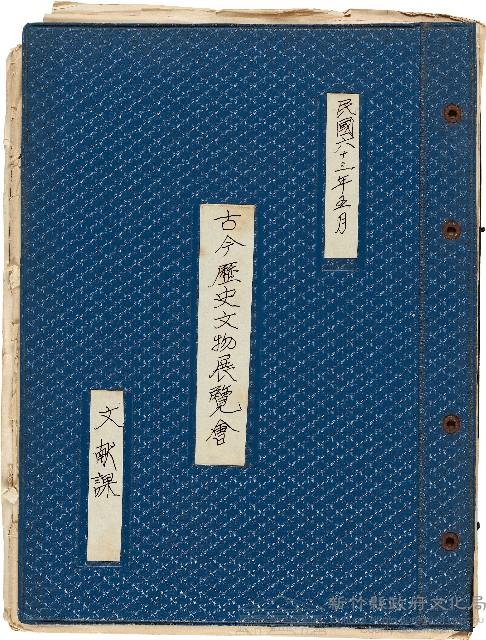 民國六十三年五月
古今歷史文物展覽會
文献課
新竹縣政府文化局